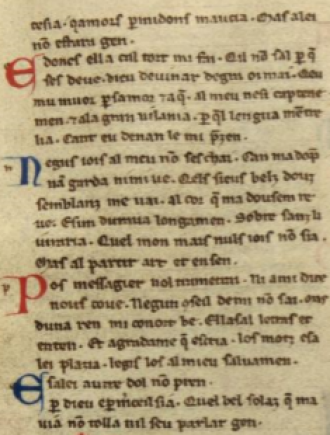 tesia. qamors p midons maucia. Mas a lei
nō estaru gen.
E doncs ella cui tort mi fai. Eil nō sal p q̄
ses deue. dieu deuinar degra oi mai. Qeu
mu muor p samor ⁊ aq̄. al meu nesi captene
men. ⁊ ala gran uilania. p q̄l lengua mētre
lia. Cant eu denan le mi pren.
Negus iois al meu nō seschai. Can madōp
nā garda ni mi ue. Qels sieus bels douz
semblanz me uai. al cor q̄ ma dousem re
ue. Esim duraua longamen. Sobre sanz li
uraria. Quel mon mais nuls iois nō sia.
Mas al partir art et ensen.
Pos messagier nol trameti. Ni ami dire
nous coue. Negun cōseil demi nō sai. mas
duna ren mi conort be. Ella sal letras et
enten. Et agradame q̄ escria. los moz; e sa
lei plaua. legis los al mieu saluamen.
E salei autre dol nō pren.
p dieu e p mercei sia. Quel bel solaz q̄ ma
uia nō tolla nil seu parlar gen.